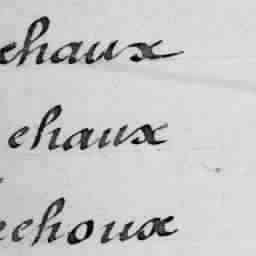 ehaux
ehaux
echoux